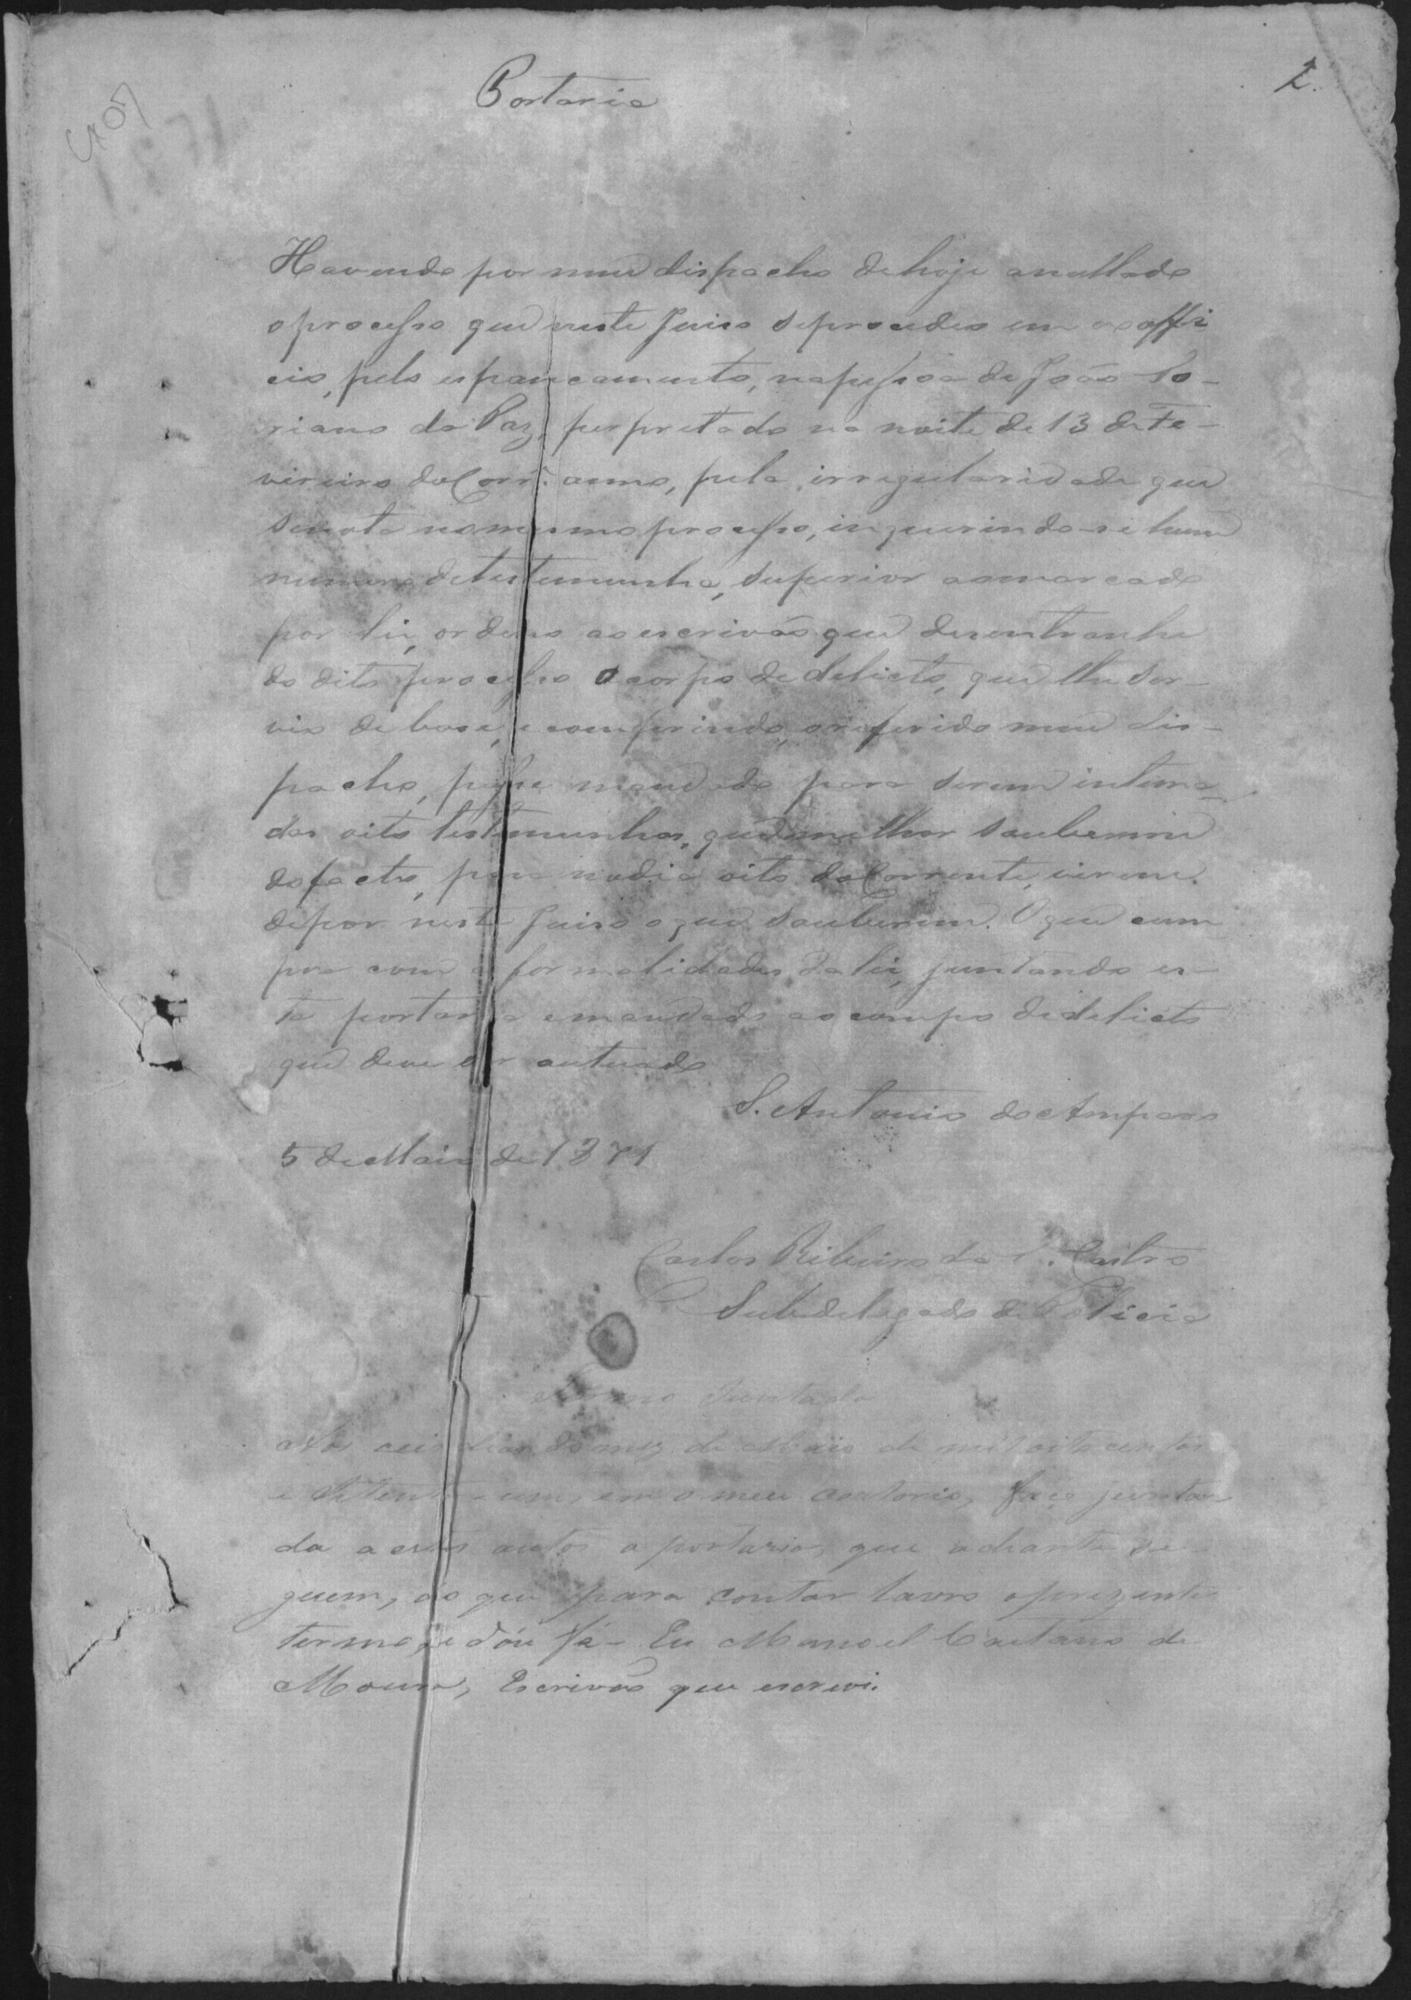 2.
Portaria
Havendo por meu dispacho de hoje anullado
o processo que neste Juiso se procedeo em ex offi
cio, pelo espancamento, na pessoa de João
riano da Paz, perpretado na noite de 13 de Fe-
vireiro do Corr.e anno, pela irregularidade que
se nota no mesmo processo, inquerindo-se hum
numero de testemunha, superior ao marcado
por lei, ordeno ao escrivão que desentranhe
do dito processo o corpo de delicto, que lhe ser-
vio de base, e comprindo, o referido meu dis-
pacho, passe mandado para serem intima-
das oito testemunhas, que melhor souberem
do facto, para no dia oito do Corrente, virem
depor neste Juiso o que souberem. O que cum
pra com as formalidades da lei, juntando es-
ta portaria e mandado ao corpo de delicto
que deve ser autuado
S. Antonio do Amparo
5 de Maio de 1871
Carlos Ribeiro da S. Castro
Subdelegado de Policia
Termo Juntada
Aos seis dias do mez de Maio de mil oito centos
e setenta e um, em o meu cartorio, faço junta
da a estes autos a portaria, que adiante se-
guem, do que para contar lavro o prezente
termo, e dou fé - Eu Manoel Caetano de
Moura, Escrivão que escrevi.